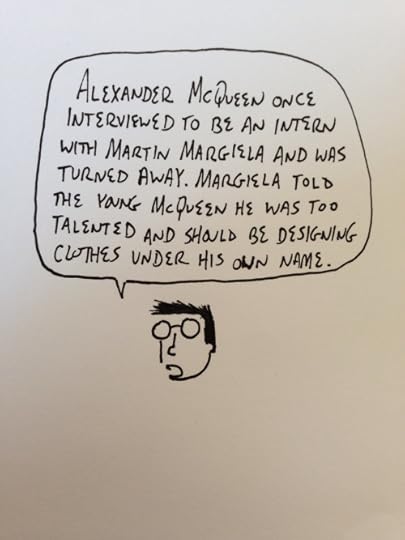 ALEXANDER McQUEEN ONCE
INTERVIEWED TO BE AN INTERN
WITH MARTIN MARGIELA AND WAS
TURNED AWAY. MARGIELA TOLD
THE YOUNG McQUEEN HE WAS TOO
TALENTED AND SHOULD BE DESIGNING
CLOTHES UNDER HIS OWN NAME.